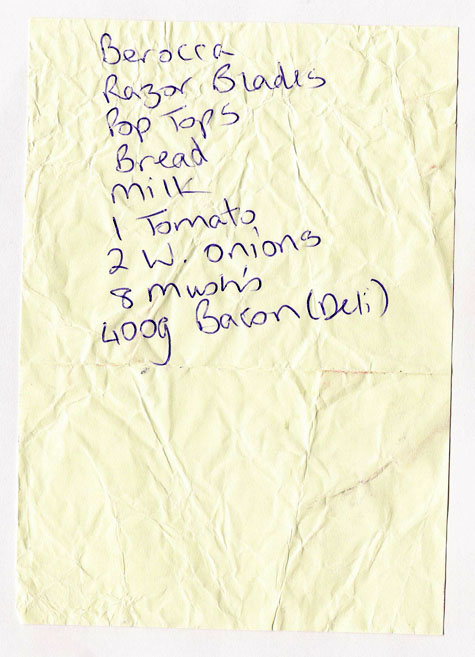 Berocca
Razor Blades
Pop Tops
Bread
Milk
1 Tomato
2 W. Onions
8 Mush's
400g Bacon (Deli)